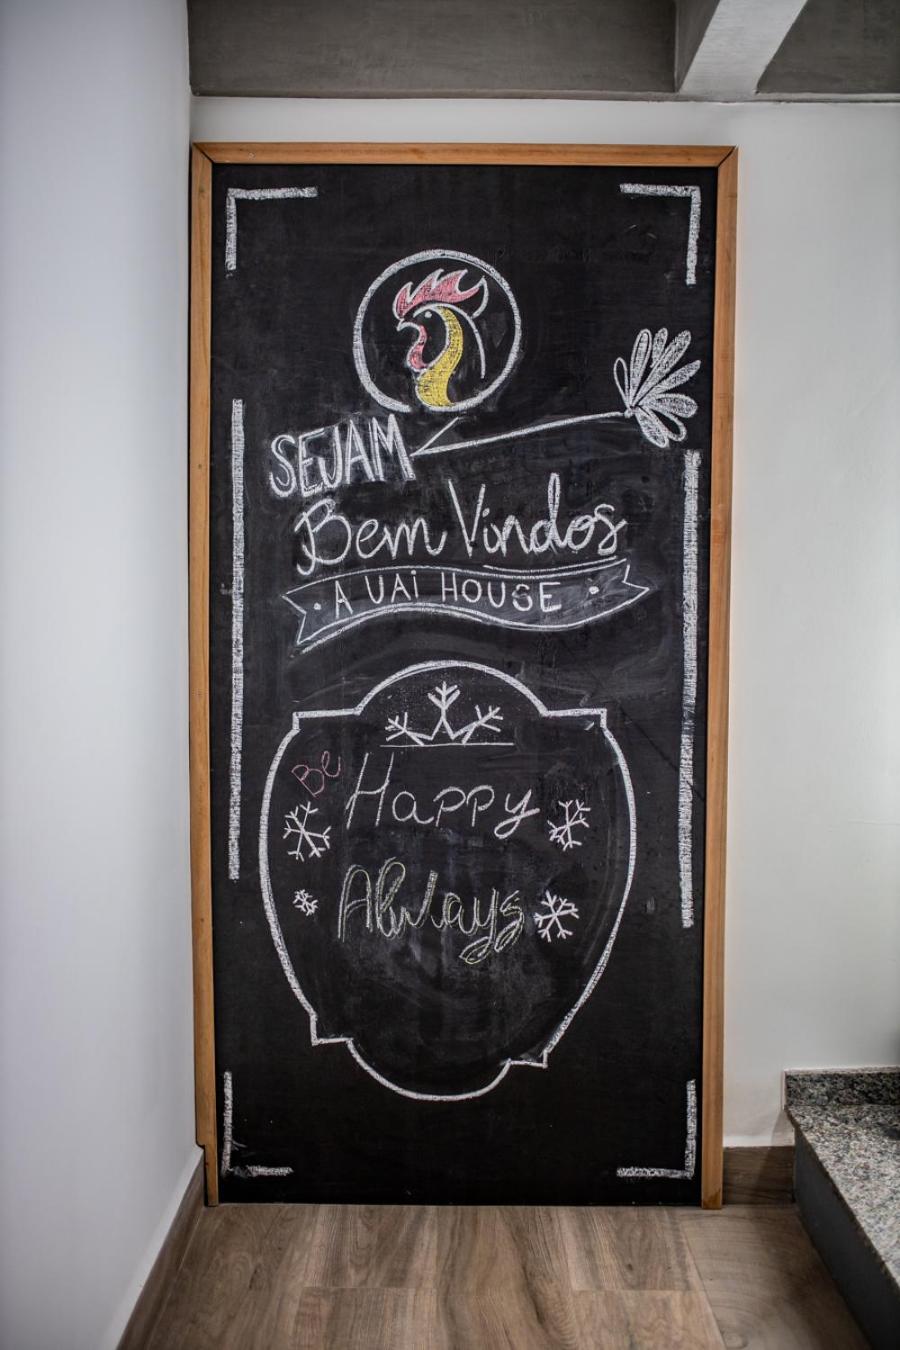 SEJAM
Bem Vindos
A UAi HOUSE
Be
Happy
Always